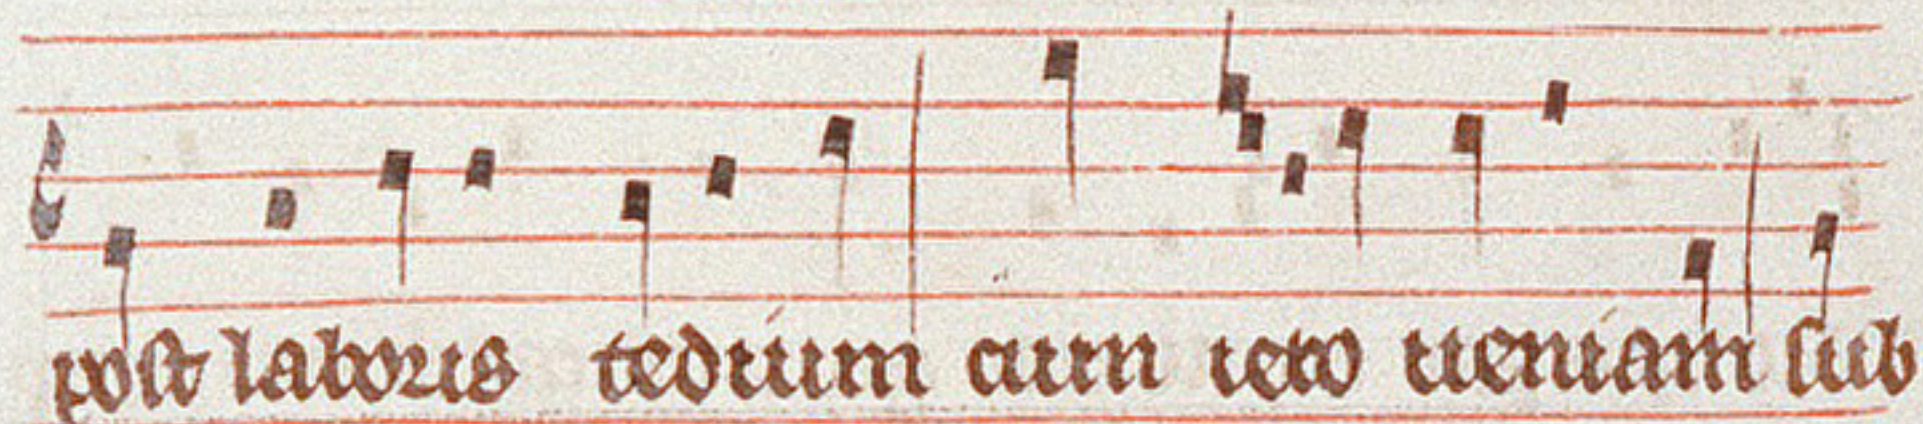 post laboris tedium cum ieto ueniam sub